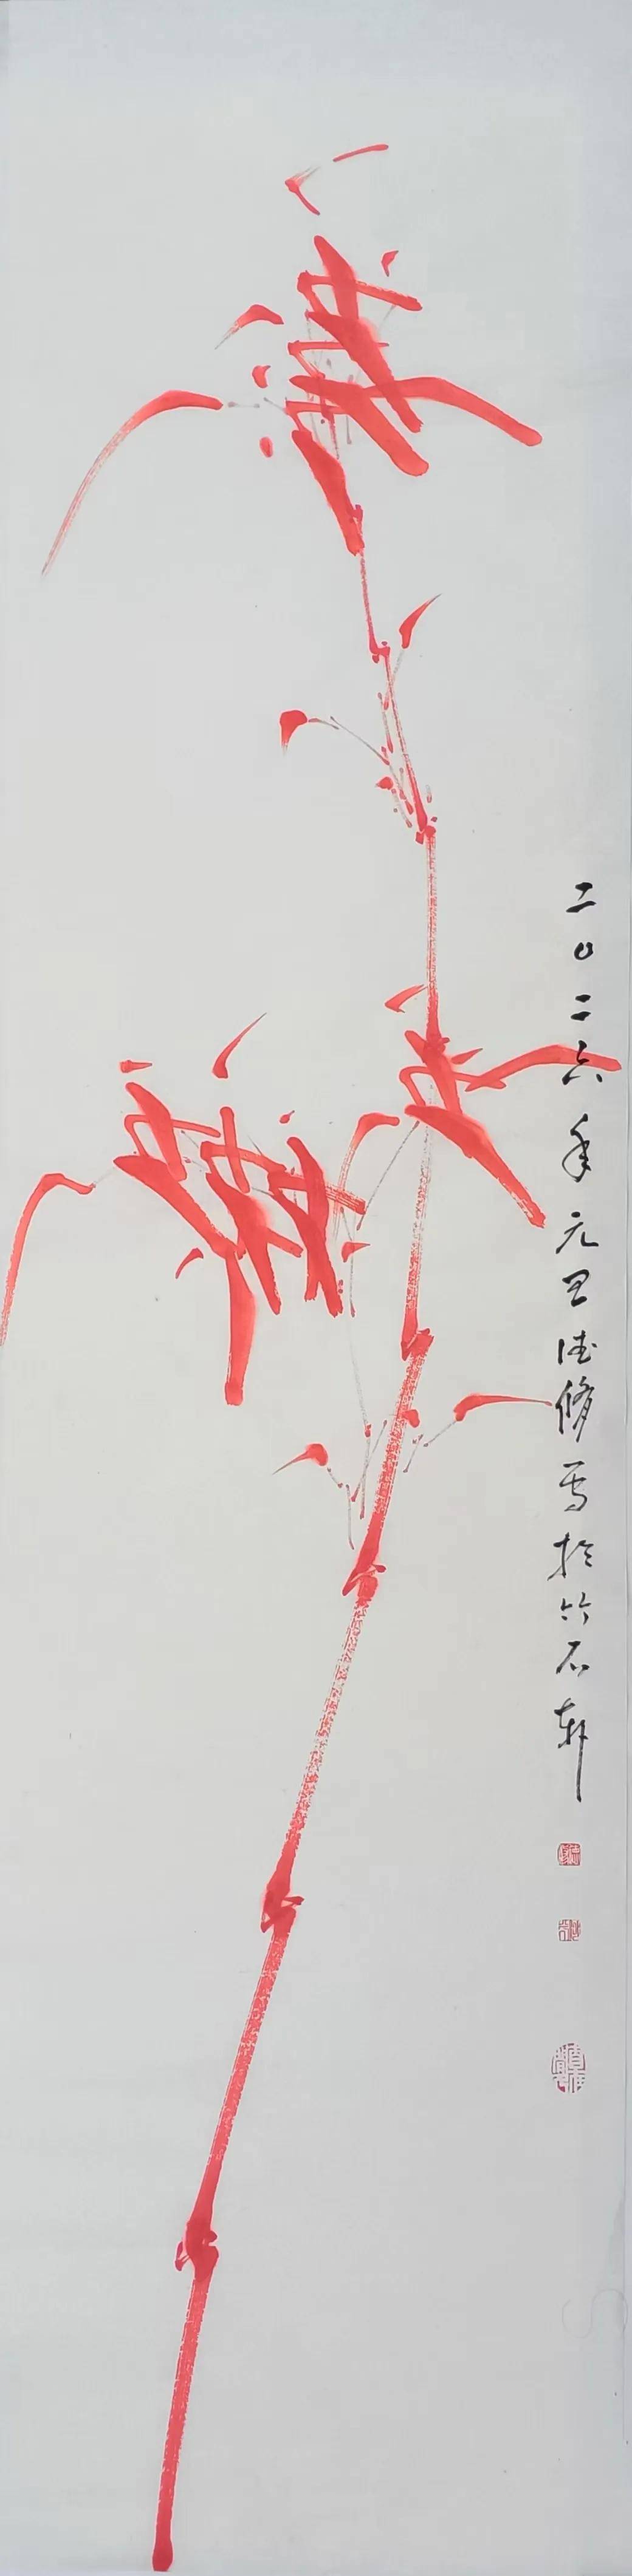 二〇二六年元旦德修写于竹石轩